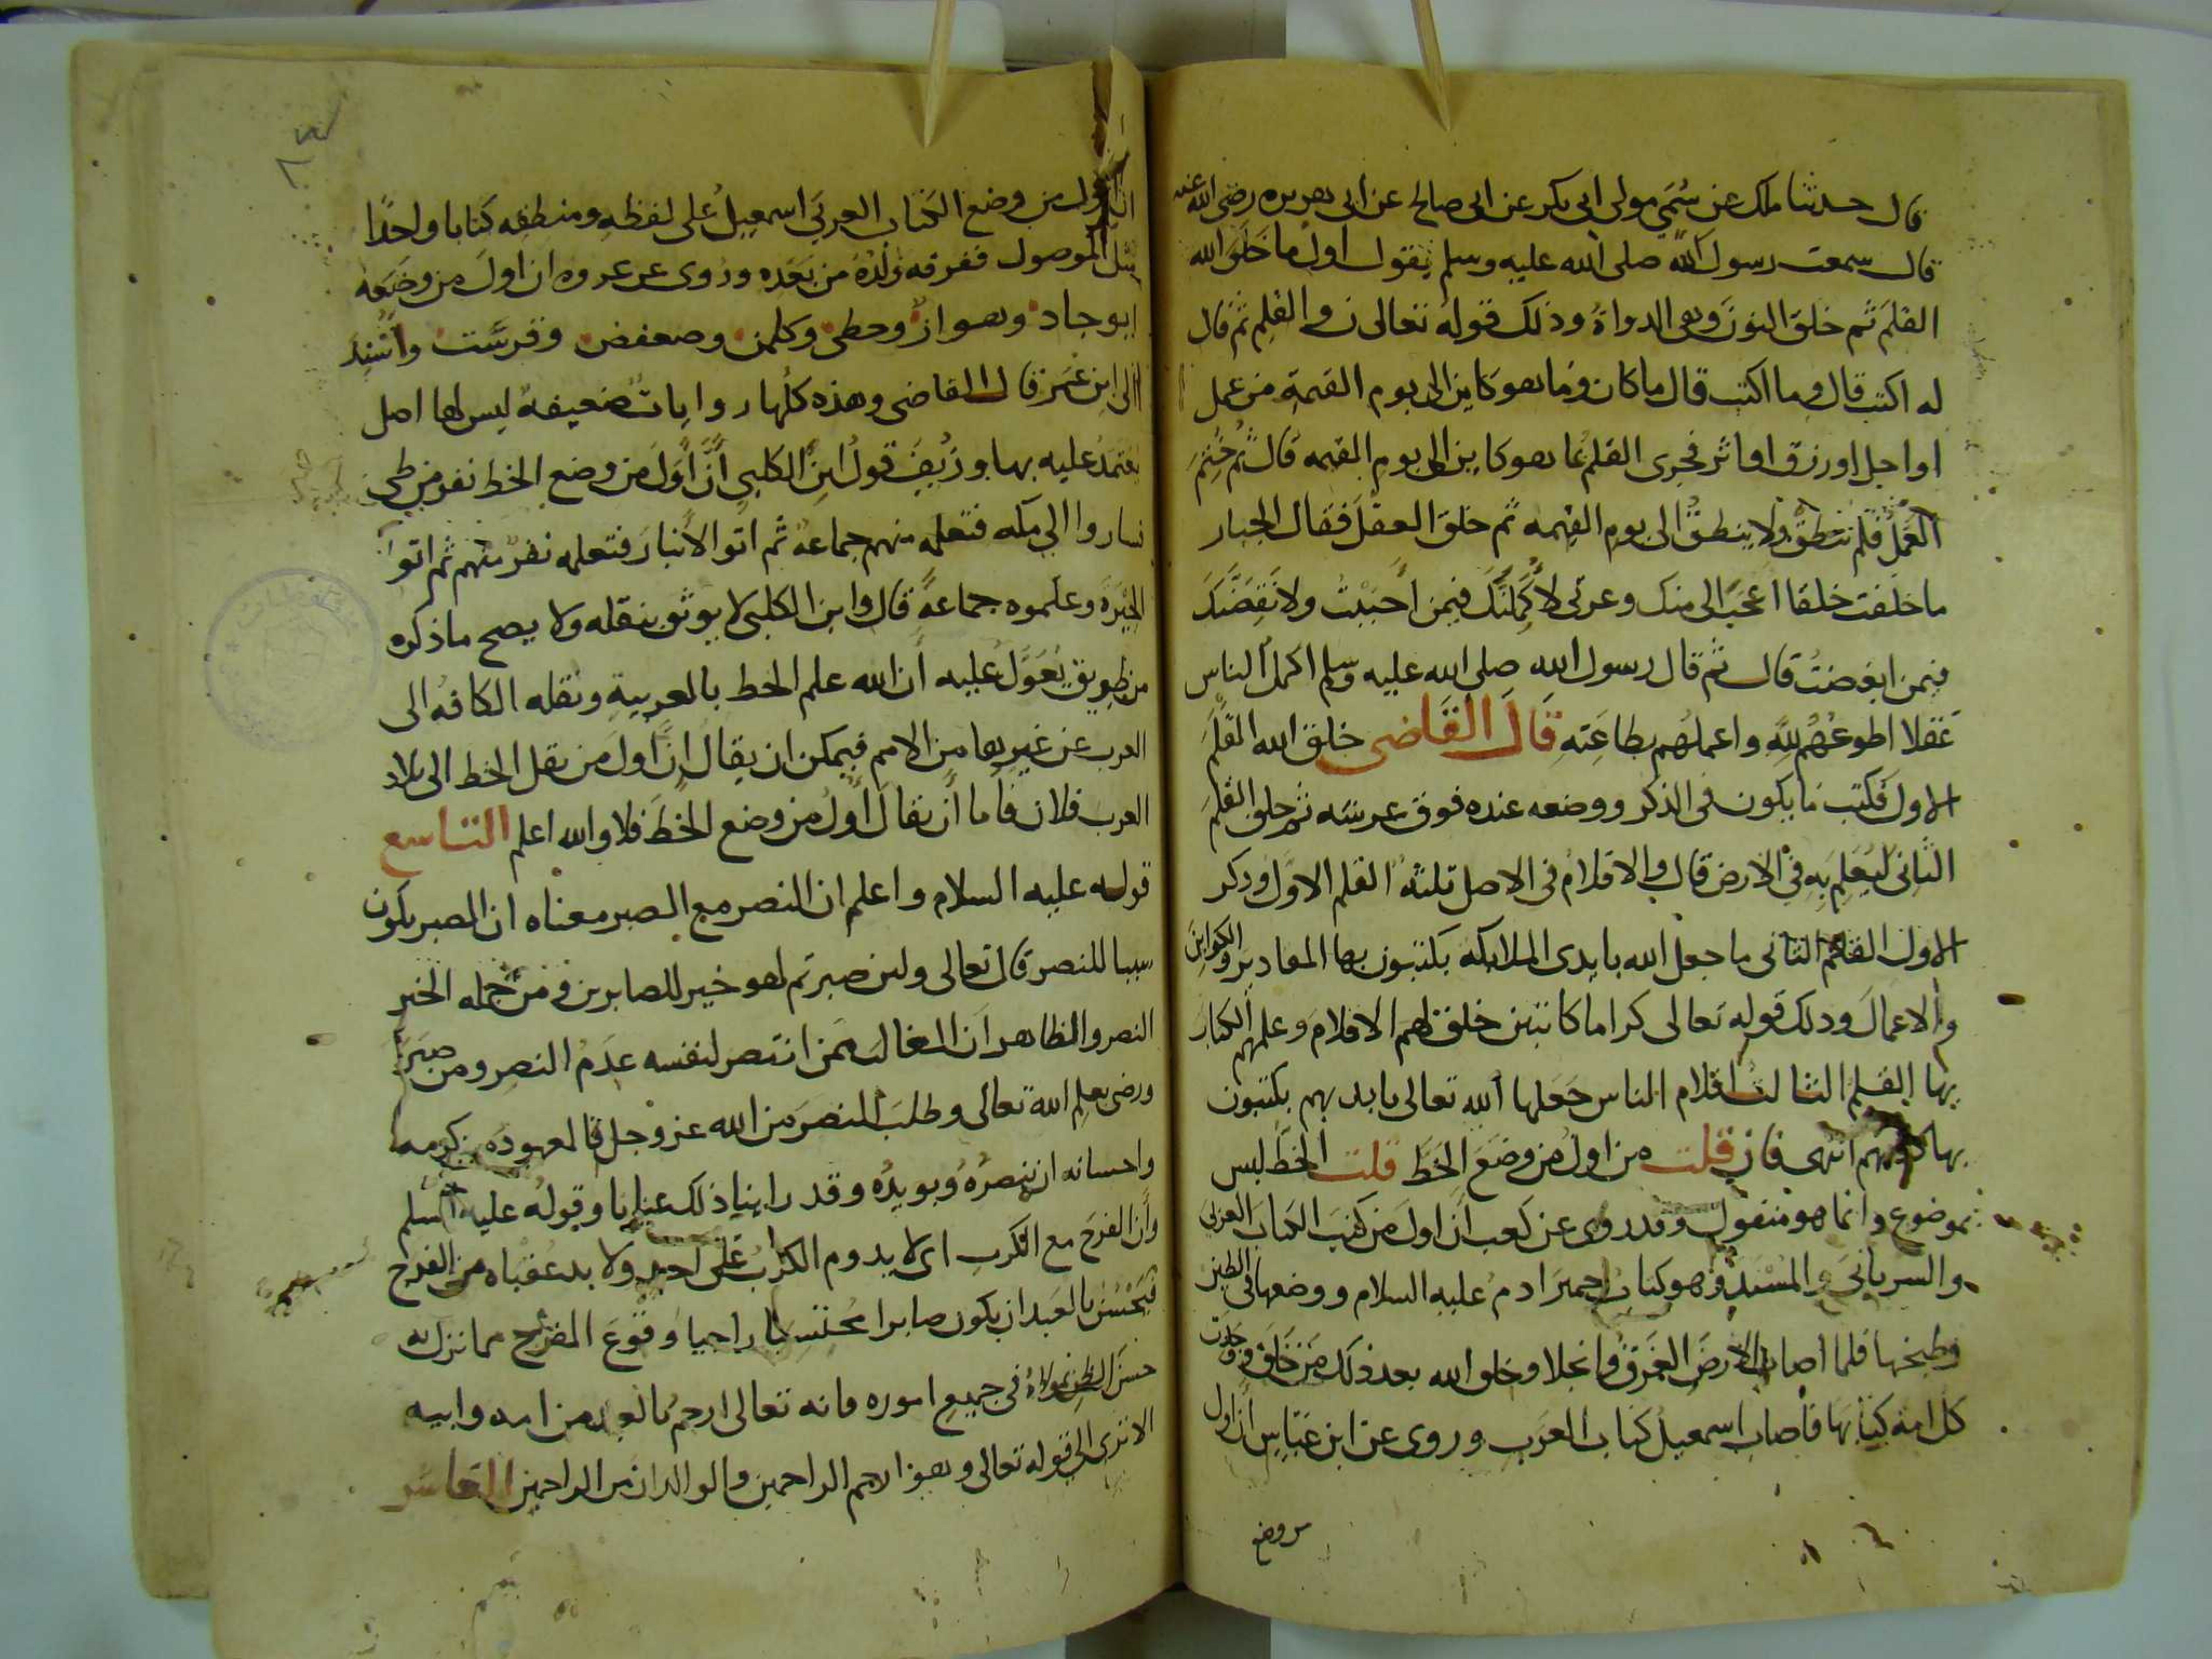 قال حدثنا ملك عن سُمَي مولى ابي بكر عن ابى صالح عن ابى هريره رضى الله عنه
قال سمعت رسول الله صلى الله عليه وسلم يقول اول ما خلق الله
القلم ثم خلق النون وهى الدواة وذلك قوله تعالى ن والقلم ثم قال
له اكتب قال وما اكتب قال ما كان وما هو كاين الى يوم القيمة من عمل
او اجل او رزق او اثر فجرى القلم بما هو كاين الى يوم القيمه قال ثم ختم
العمل فلم ينطق ولا ينطق الى يوم القيمه ثم خلق العقل فقال الجبار
ما خلقت خلقا اعجب الى منك وعزتى لأكملنك فيمن احببت ولانقصنك
فيمن ابغضت قال ثم قال رسول الله صلى الله عليه وسلم اكمل الناس
عقلا اطوعهم لله واعملهم بطاعته قال القاضى خلق الله القلم
الاول فكتب ما يكون فى الذكر ووضعه عنده فوق عرشه ثم خلق القلم
الثانى ليعلم به فى الارض قال والاقلام فى الاصل ثلثة القلم الاول وذكر
الاول القلم الثانى ما جعل الله بايدى الملايكه يكتبون بها المقادير والكواين
والاعمال وذلك قوله تعالى كراما كاتبين خلق لهم الاقلام وعلمهم الكتاب
بها القلم الثالث اقلام الناس جعلها الله تعالى بايديهم يكتبون
بها كلامهم انتهى فان قلت من اول من وضع الخط قلت الخط ليس
بموضوع وانما هو منقول وقد روى عن كعب ان اول من كتب الكتاب العربى
والسريانى والمسند وهو كتاب حمير ادم عليه السلام ووضعها فى الطين
وطبخها فلما اصاب الارض الغرق وانجلا وخلق الله بعد ذلك من خلق وجدت
كل امة كتابها فاصاب اسمعيل كتاب العرب وروى عن ابن عباس ان اول
من وضع
ان اول من وضع الكتاب العربي اسمعيل على لفظه ومنطقه كتابا واحدا
مثل الموصول ففرقه ولده من بعده وروى عن عروه ان اول من وضعه
ابو جاد وهواز وحطى وكلمن وصعفض وقرست واسند
الى ابن عمر قال القاضى وهذه كلها روايات ضعيفه ليس لها اصل
يعتمد عليه بها وزيف قول ابن الكلبى أن أول من وضع الخط نفر من طى
ساروا الى مكه فتعلمه منهم جماعة ثم اتوا الانبار فتعلمه نفر منهم ثم اتوا
الحيرة وعلموه جماعة قال وابن الكلبى لا يوثق بنقله ولا يصح ما ذكره
من طريق يعول عليه ان الله علم الخط بالعربية ونقله الكافه الى
العرب عن غيرها من الامم فيمكن ان يقال ان اول من نقل الخط الى بلاد
العرب فلان فاما أن يقال اول من وضع الخط فلا والله اعلم التاسع
قوله عليه السلام واعلم ان النصر مع الصبر معناه ان الصبر يكون
سببا للنصر قال تعالى ولين صبرتم لهو خير للصابرين ومن جمله الخير
النصر والظاهر ان الغالب ممن انتصر لنفسه عدم النصر ومن صبر
ورضى بعلم الله تعالى وطلب النصر من الله عز وجل فالمعهود من كرمه
واحسانه ان ينصره ويويده وقد راينا ذلك عيانا وقوله عليه السلم
وان الفرج مع الكرب اى لا يدوم الكرب على احد ولا بد عقباه من الفرج
فيحسن بالعبد ان يكون صابرا محتسبا راجيا وقوع الفرج مما نزل به
حسن الظن بمولاه فى جميع اموره فانه تعالى ارحم بالعبد من امه وابيه
الا ترى الى قوله تعالى وهو ارحم الراحمين والوالدان من الراحمين العاشر